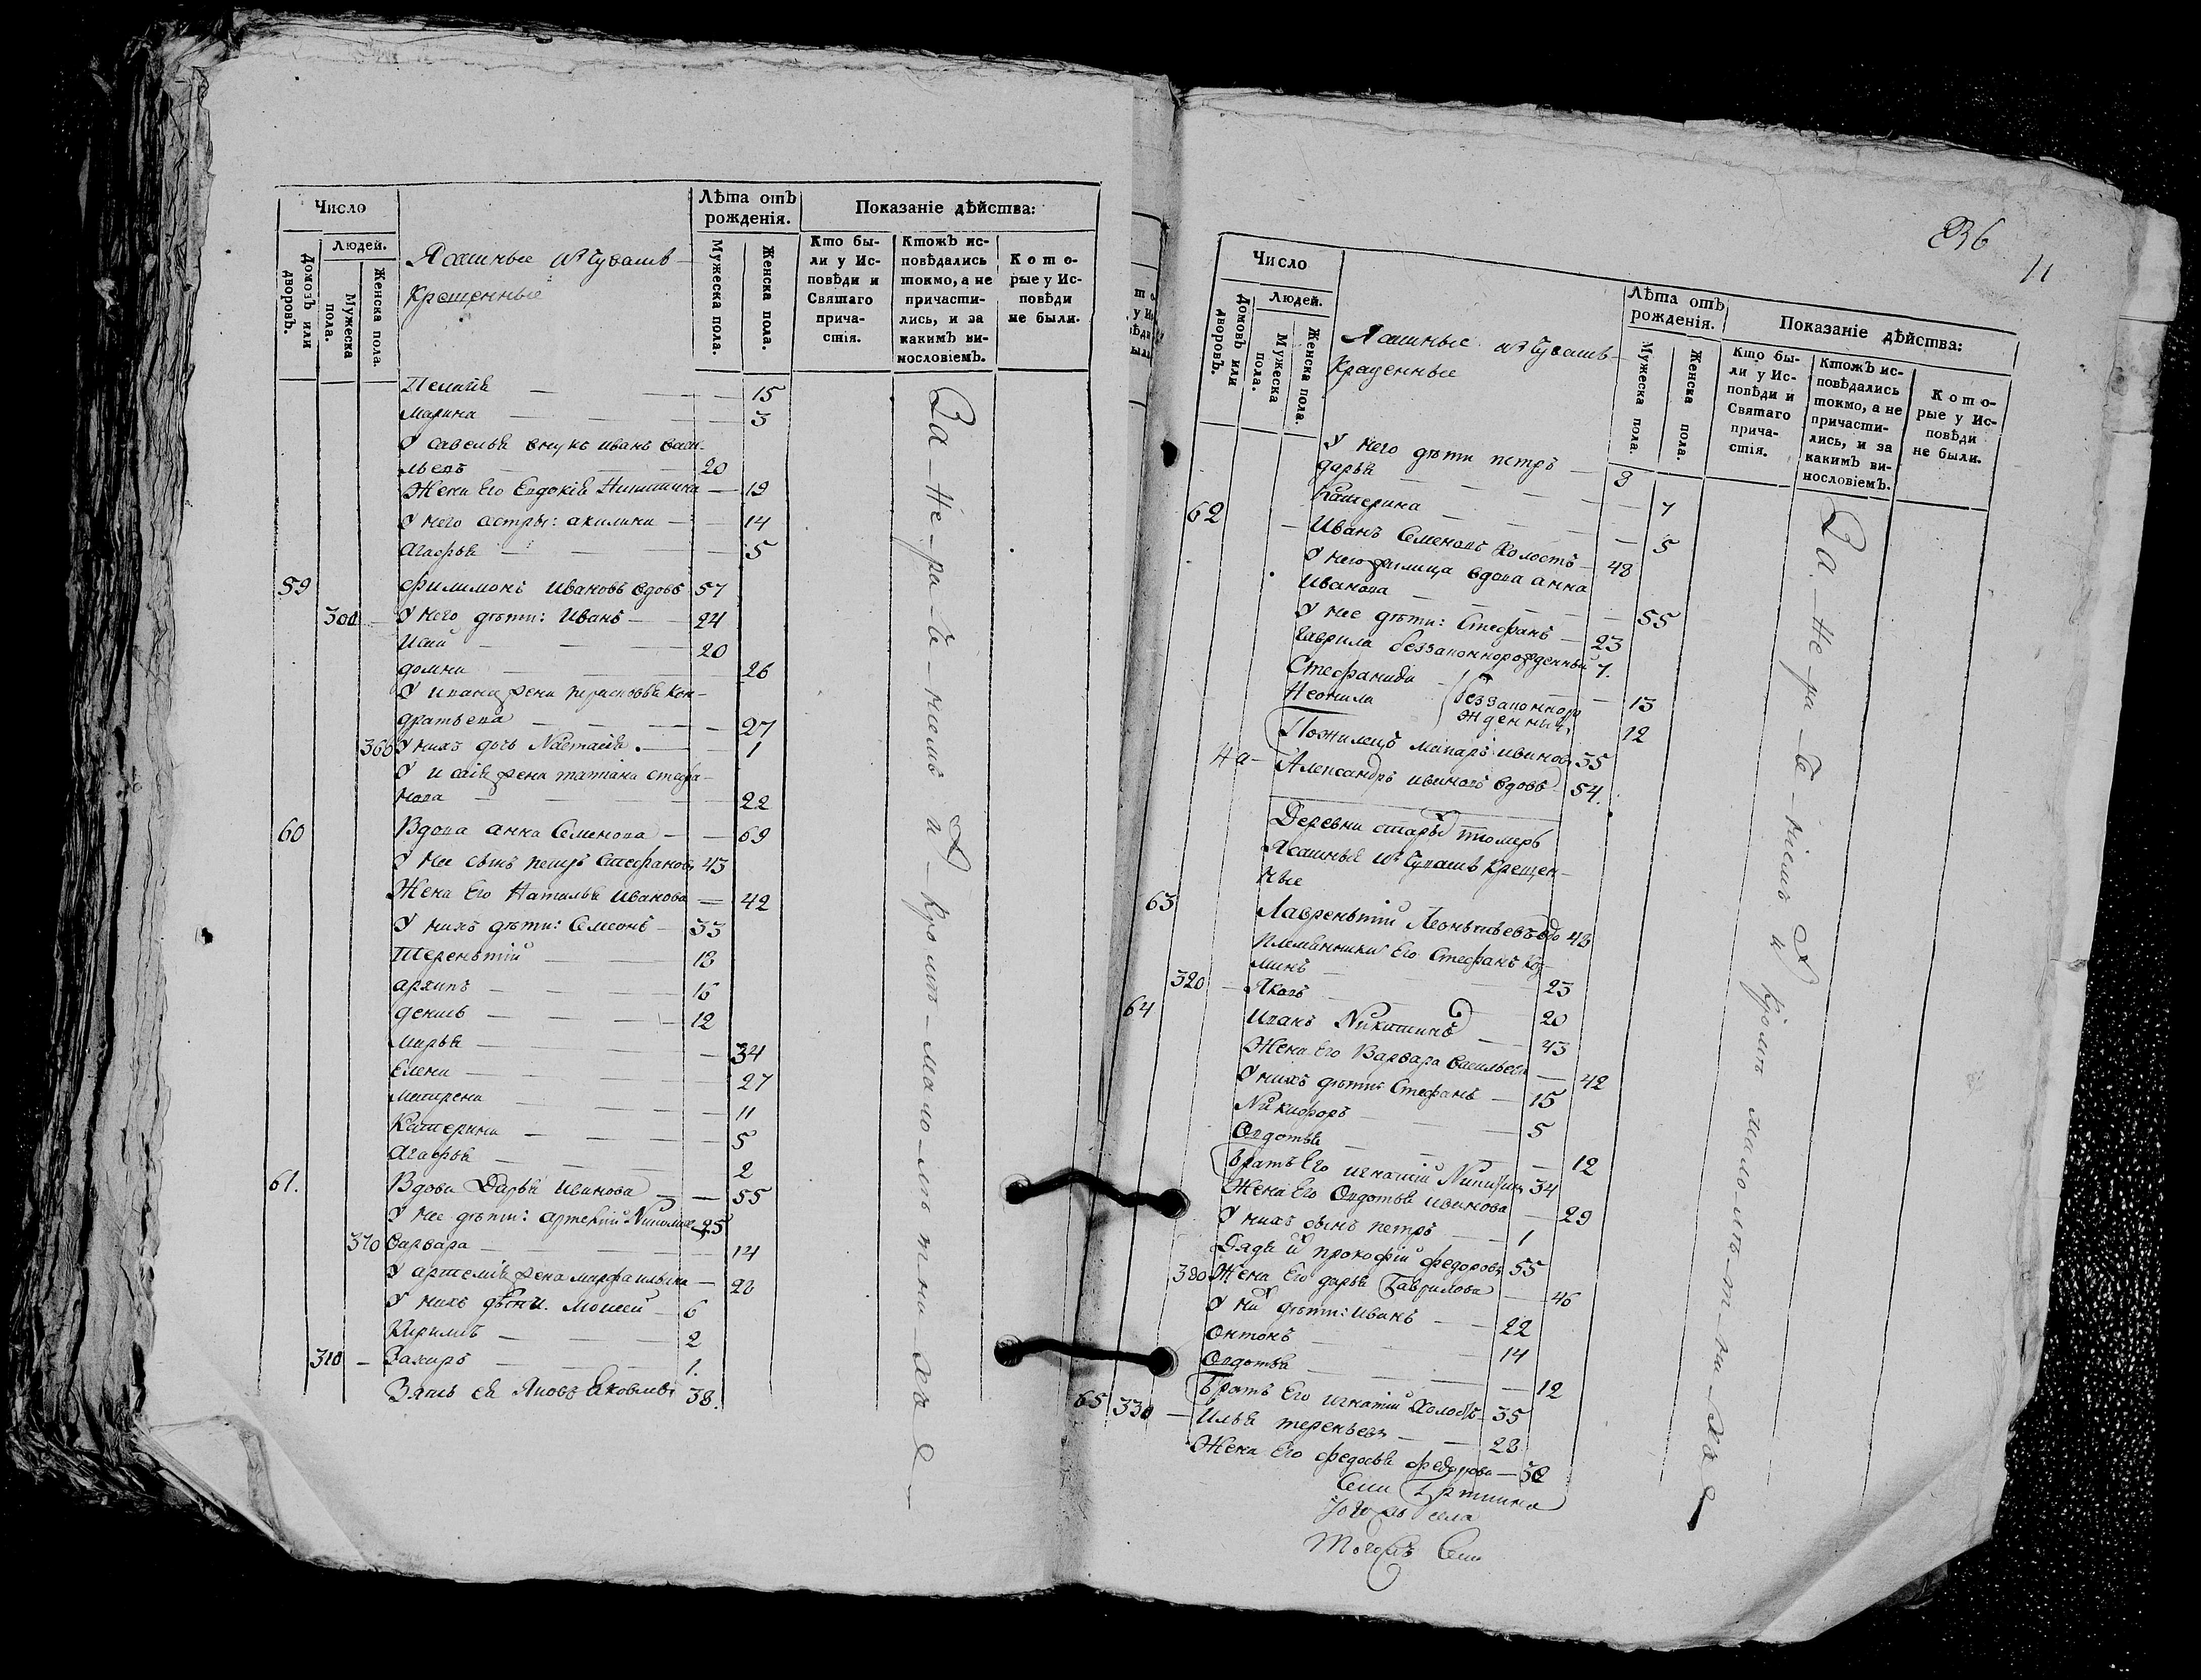 Число
Людей.
Домовъ или дворовъ.
Мужеска пола.
Женска пола.
Ясашные изъ Чувашъ
Крещенные
Лѣта отъ рожденія.
Мужеска пола.
Женска пола.
Показаніе дѣйства:
Кто бы-
ли у Ис-
повѣди и
Святаго
прича-
стія.
Ктожъ ис-
повѣдались
токмо, а не
причасти-
лись, и за
какимъ ви-
нословіемъ.
Кото-
рые у Ис-
повѣди
не были.
Пелагія 15
Марина 3
У савелья внукъ иванъ васи-
льевъ 20
Жена Его Евдокія Никитина 19
У него сестры: акилина 14
Агафья 5
59 Филимонъ Ивановъ вдовъ 57
300 У него дѣти: Иванъ 24
Исай 20
домна 26
У ивана жена прасковья кон-
дратьева 27
360 У нихъ дочь Настасія 1
У исаія жена татіана стефа-
нова 22
60 Вдова анна Семенова 69
У нее сынъ петръ Стефановъ 43
Жена Его Наталья Иванова 42
У нихъ дѣти: Семенъ 33
Терентій 18
архипъ 16
денисъ 12
Марья 34
Елена 27
Матрена 11
Катерина 5
Агафья 2
61. Вдова Дарья Иванова 55
У нее дѣти: артемій 25
370 Варвара 14
У артемія жена марфа ильина 28
У нихъ дѣти: Моисей 6
Кирилъ 2
310 Захаръ 1.
Зять ея Яковъ Яковлевъ 38.
За-не-ра-че-ніемъ и кромѣ-мало-лѣ-т-ны-хъ
236
11
Число
Людей.
Домовъ или дворовъ.
Мужеска пола.
Женска пола.
Ясашные изъ Чувашъ
Крещенные
Лѣта отъ рожденія.
Мужеска пола.
Женска пола.
Показаніе дѣйства:
Кто бы-
ли у Ис-
повѣди и
Святаго
прича-
стія.
Ктожъ ис-
повѣдались
токмо, а не
причасти-
лись, и за
какимъ ви-
нословіемъ.
Кото-
рые у Ис-
повѣди
не были.
У него дѣти петръ 9
дарья 7
Катерина 5
62 Иванъ Семеновъ холостъ 48
У него жилица вдова анна
Иванова 55
У нее дѣти: Стефанъ 23
гаврила беззаконнорожденный 7.
Стефанида 13
Неонила 12
беззаконноро
жденныя
Пожилецъ макаръ ивановъ 35
Александръ ивановъ вдовъ 54.
Деревни старыхъ
Ясашныя изъ Чувашъ Крещен-
ные
63 Лаврентій Леонтьевъ вдо 48
Племянники Его Стефанъ Коз-
минъ 23
320 Яковъ 20
64 Иванъ Никитинъ 43
Жена Его Варвара Васильева 42
У нихъ дѣти: Стефанъ 15
Никифоръ 5
Овдотья 12
Братъ Его игнатій Никитинъ 34
Жена Его Овдотья ивинова 29
У нихъ сынъ петръ 1
Дядя их прокофій федоровъ 55
380 Жена Его дарья Гаврилова 46
У них дѣти: Иванъ 22
Онтонъ 14
Овдотья 12
Братъ Его игнатій холостъ 35
65 330 Илья терентьевъ 28
Жена Его федосья федорова 30
За-не-ра-че-ніемъ и кромѣ мало-лѣ-т-ны-хъ